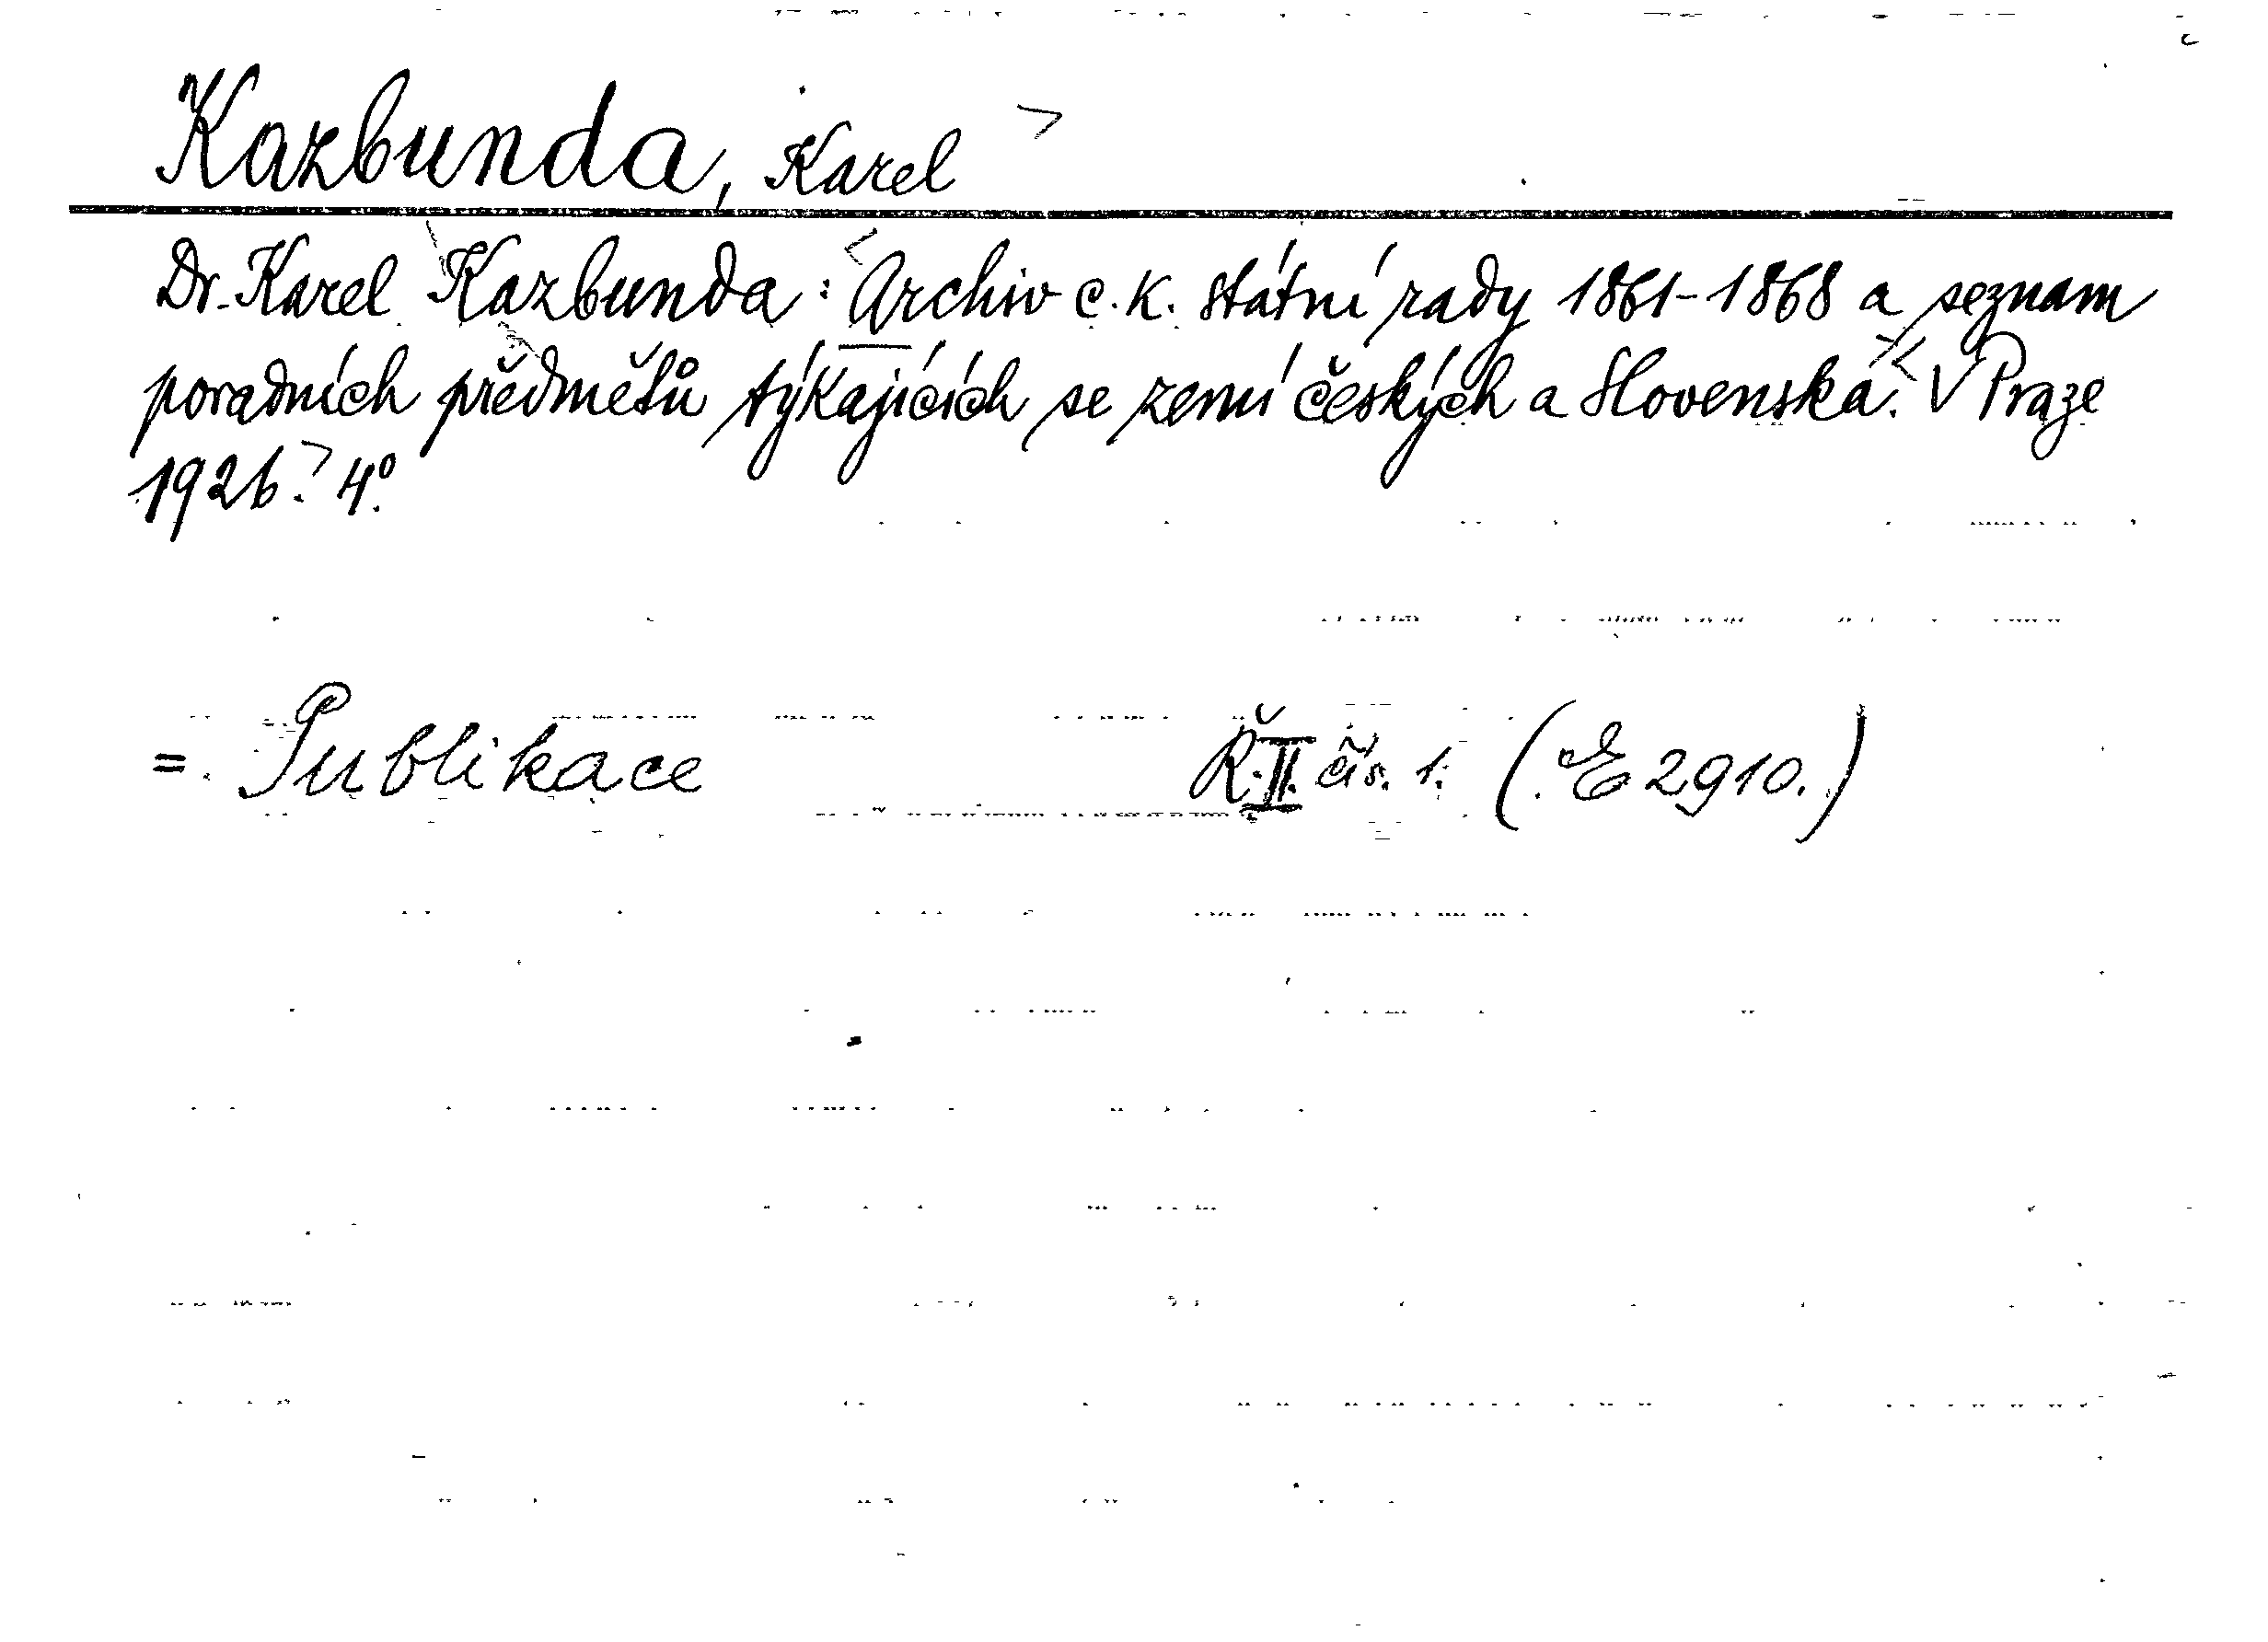 Kazbunda, Karel
Dr. Karel Kazbunda: Archiv c. k. státní rady 1861-1868 a seznam
poradních předmětů týkajících se zemí českých a Slovenska. V Praze
1926. 4°.
= Publikace Ř. II. čís. 1. (E 2910.)